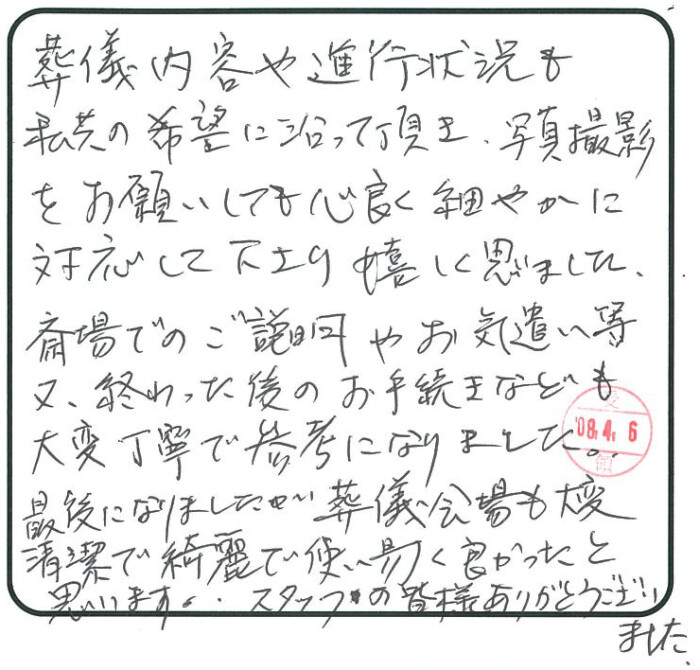 葬儀内容や進行状況も
私共の希望に沿って頂き、写真撮影
をお願いしても心良く細やかに
対応して下さり嬉しく思いました。
斎場でのご説明やお気遣い等
又、終わった後のお手続きなども
大変丁寧で参考になりました。
受
'08.4.6
領
最後になりましたが葬儀会場も大変
清潔で綺麗で使い易く良かったと
思います。スタッフの皆様ありがとうござい
ました